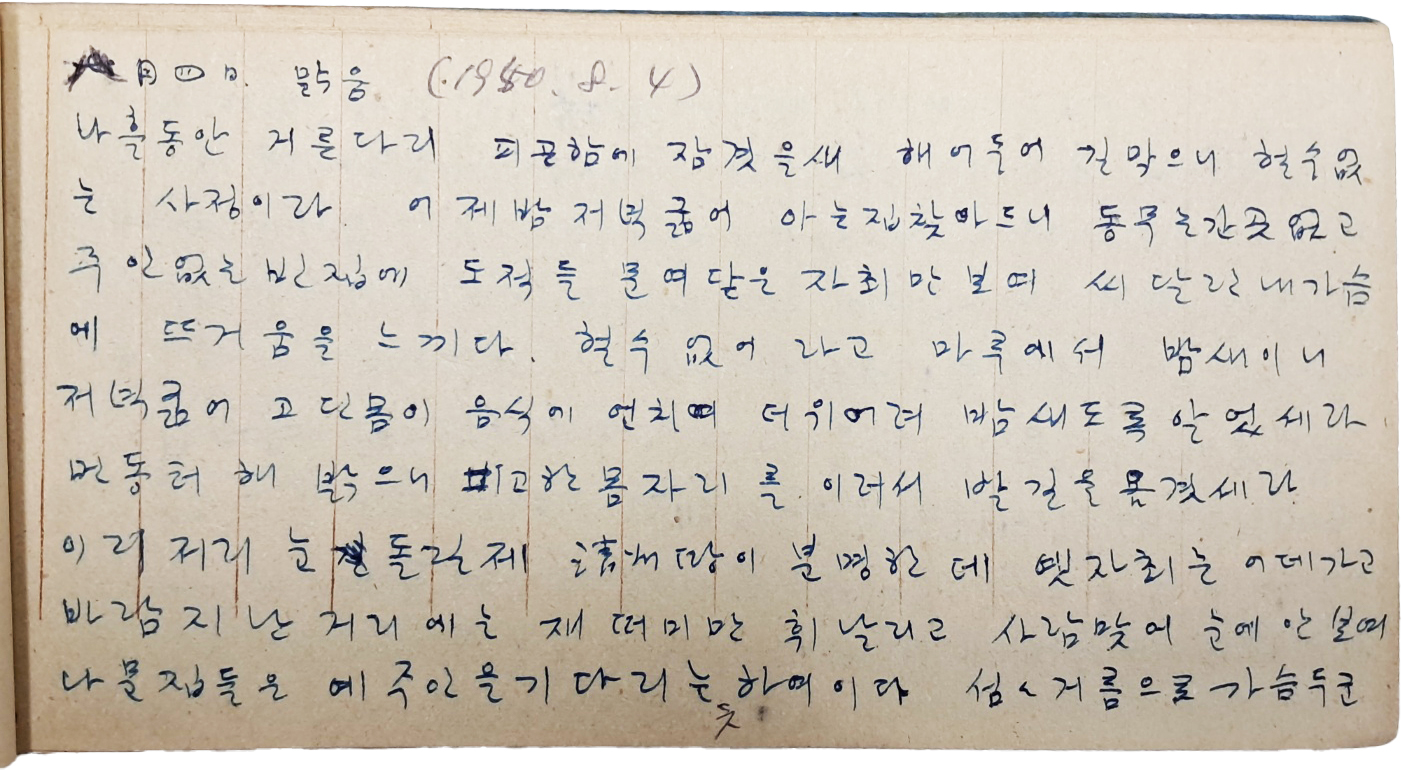 八月四日. 맑음 (.1950. 8. 4)
나흘동안 거른다리 피곤함에 잠겻을새 해어듭어 길막으니 헐수없
는 사정이라 어제밤 저녁굶어 아는집찾아드니 동무는간곳없고
주인없는 빈집에 도적들 문여닫은 자최만 보여 씨달린 내가슴
에 뜨거움을 느끼다. 헐수 없어 라고 마루에서 밤새이니
저녁굶어 고단몸이 음식에 언치여 더위어려 밤새도록 알었세라.
먼동터 해 밝으니 피고한몸자리를 이러서 발길을옴겻세라
이리 저리 눈 돌릴제 淸州땅이 분명한데 옛자최는 어데가고
바람지난 거리에는 재떠미만 휘날리고 사람맞어 눈에 안보여
나믄집들은 예주인을기다리는듯하여이다 섬々거름으로 가슴두군